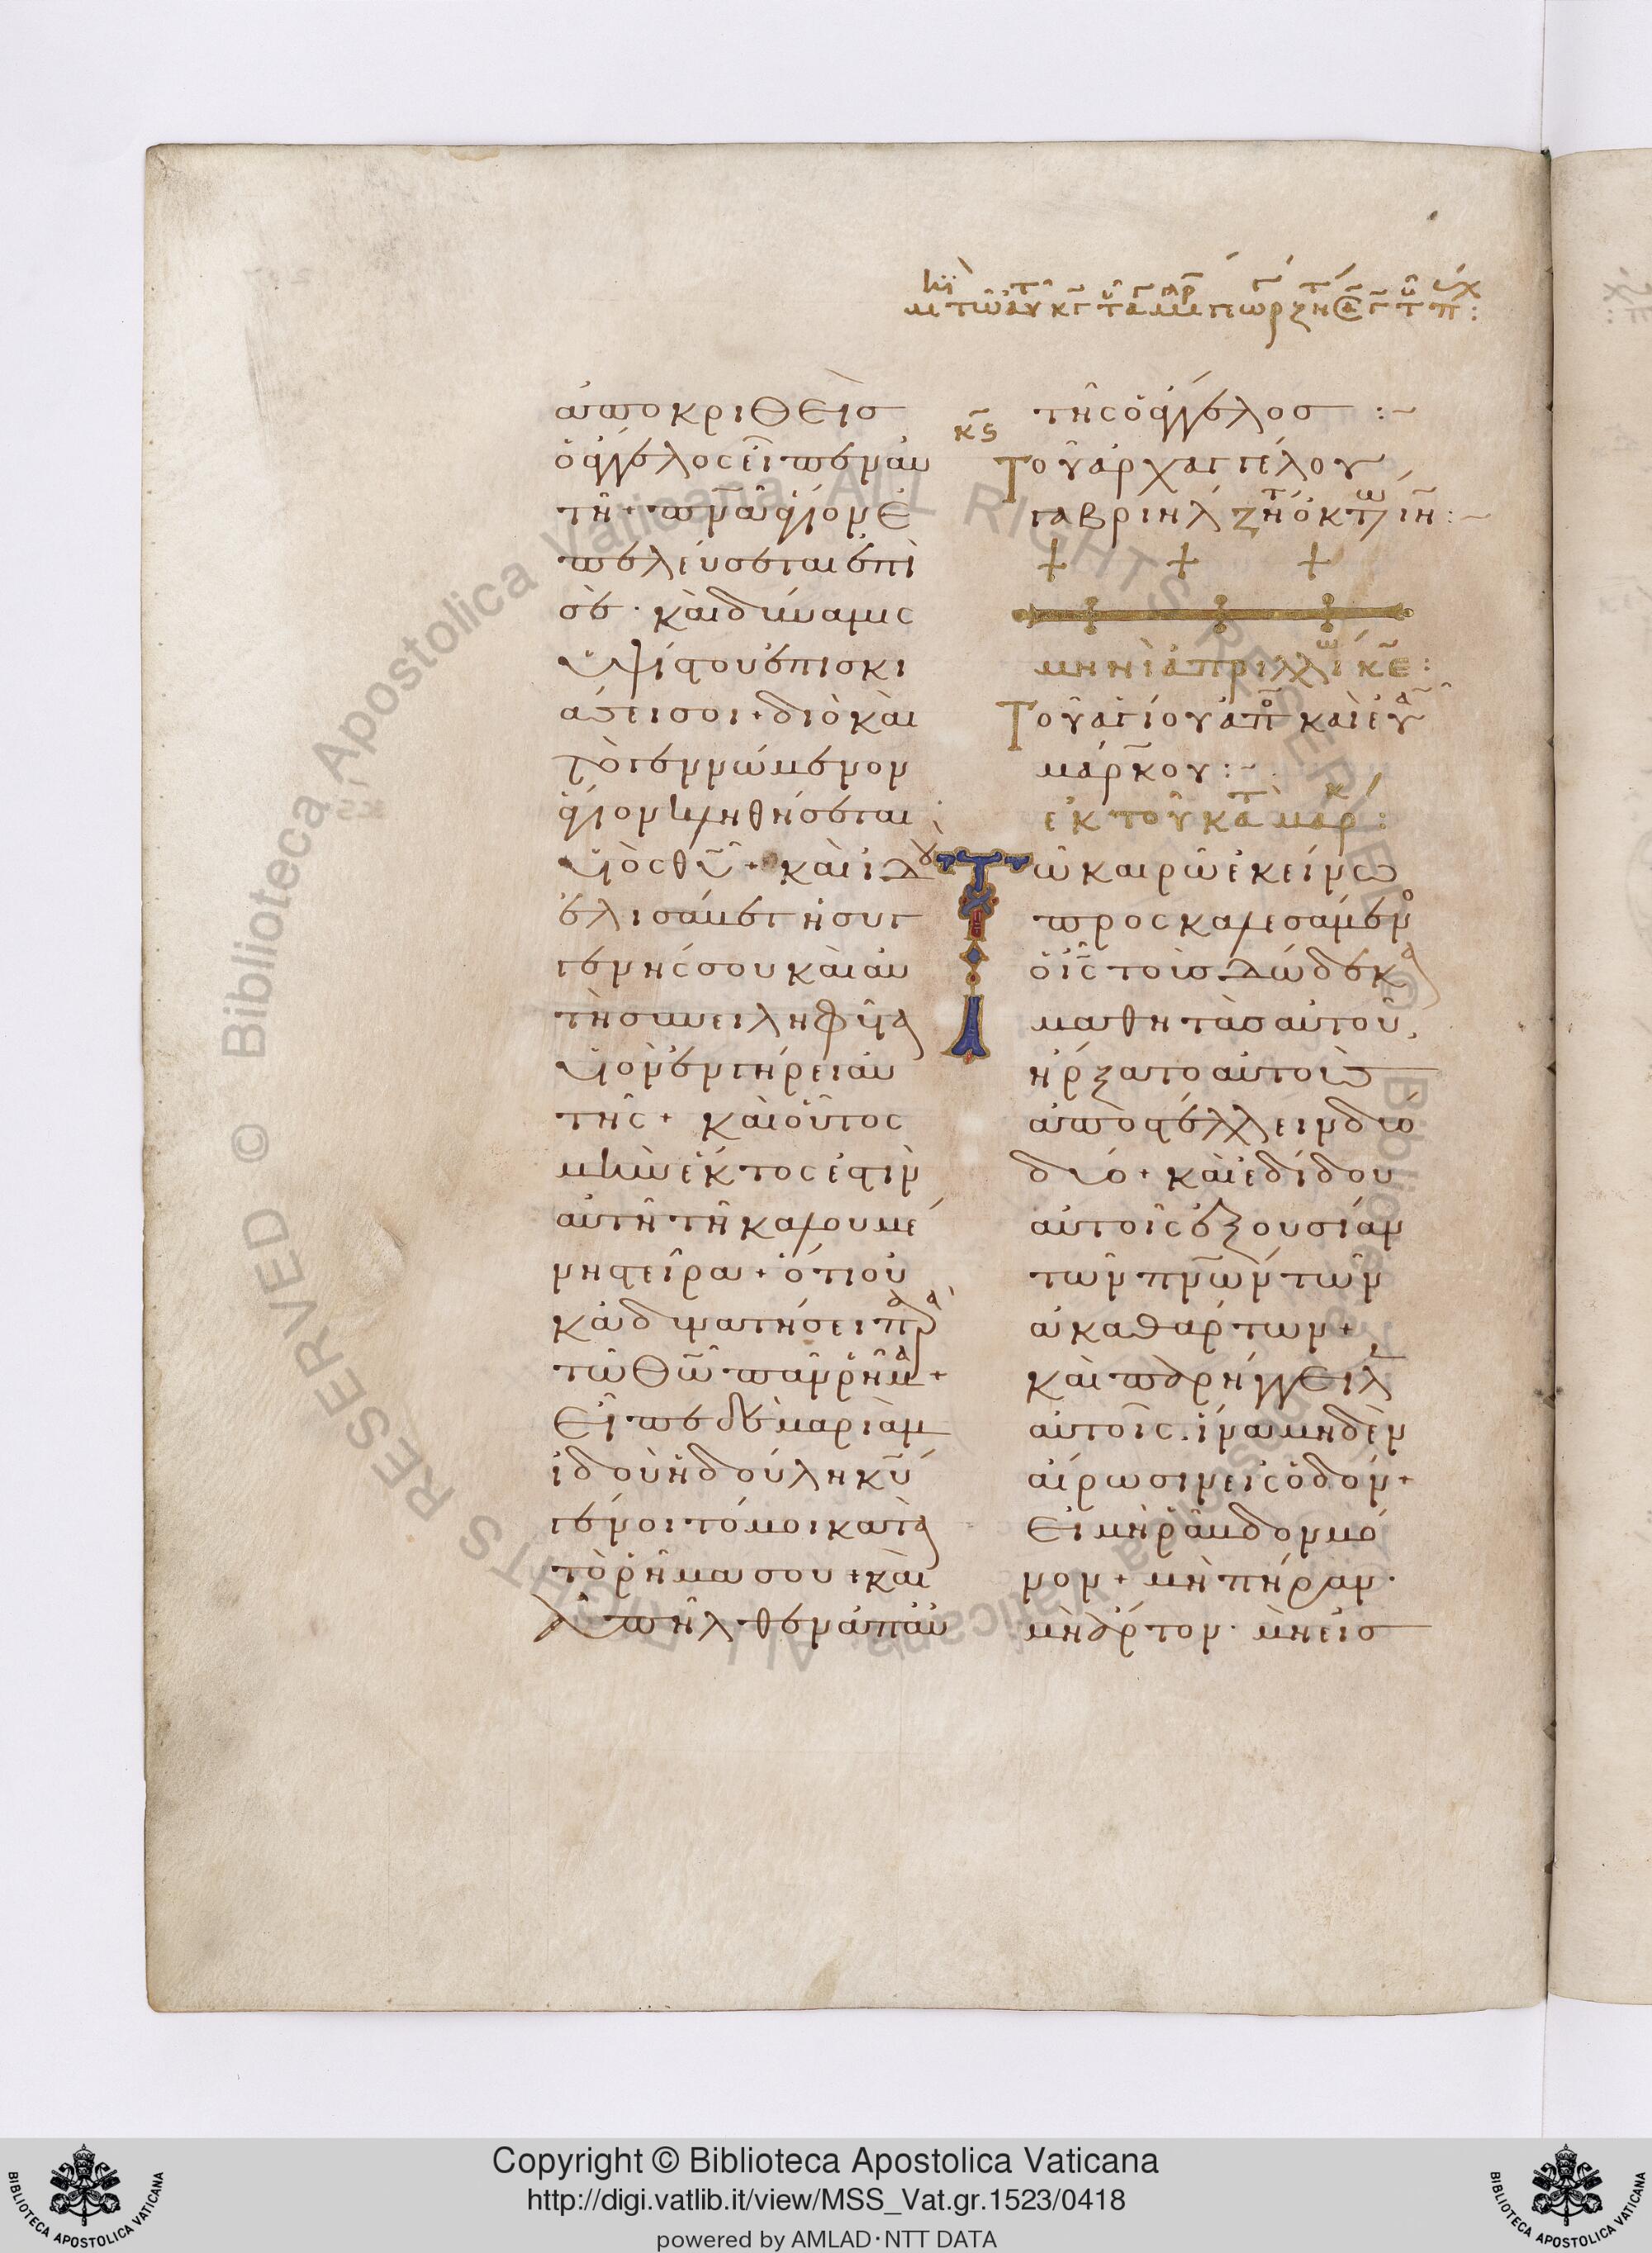 ἀποκριθεὶσ
ὁ ἄγγελος εἶπεν αὐ
τῆ + πν̅α ἅγιον ἐ
πελεύσεται ἐπὶ
σὲ · καὶ δύναμις
ὑψίστου ἐπισκι
άσει σοι + διὸ καὶ
τὸ γεννώμενον
ἅγιον κληθήσεται
υἱὸς θυ̅ + καὶ ἰδοὺ
ἐλισάβετ ἡ συγ
γενής σου καὶ αὐ
τὴ συνειληφῦα
υἱὸν ἐν γήρει αὐ
τῆς + καὶ οὗτος
μὴν ἕκτος ἐστὶν
αὐτῆ τῆ καλουμέ
νη στείρα + ὅτι οὐ
κ ἀδυνατήσει παρὰ
τῶ θω̅ πᾶν ῥῆμα +
Εἶπε δὲ μαριὰμ
ἰδοὺ ἡ δούλη κυ̅
γένοιτό μοι κατὰ
τὸ ῥῆμα σου + καὶ
ἀπῆλθεν ἀπ αὐ
τῆς ὁ ἄγγελοσ :~
κς̅
Τοῦ ἀρχαγγέλου
γαβριήλ ζητ ὀκτω ιη̅ :~
+ + +
μηνὶ ἀπριλλίω κε̅ :
Τοῦ ἁγίου ἀπο καὶ εὐα
μάρκου :~
ἐκ τοῦ κατ μάρκ :
Τῶ καιρῶ ἐκείνω
προσκαλεσάμενο
ὁ ις̅ τοὺσ δώδεκα
μαθητὰσ αὐτοῦ,
ἤρξατο αὐτοὺσ
ἀποστέλλειν δύο
δύο + καὶ ἐδίδου
αὐτοῖς ἐξουσίαν
τῶν πνω̅ν τῶν
ἀκαθάρτων +
καὶ παρήγγειλ
αὐτοῖς . ἵνα μηδὲν
αἴρωσιν εἰς ὁδὸν +
Εἰ μὴ ῥάβδον μό
νον + μὴ πήραν ·
μὴ ἄρτον · μὴ εἰσ
Copyright © Biblioteca Apostolica Vaticana
http://digi.vatlib.it/view/MSS_Vat.gr.1523/0418
powered by AMLAD·NTT DATA
BIBLIOTECA APOSTOLICA VATICANA
BIBLIOTECA APOSTOLICA VATICANA
© Biblioteca Apostolica Vaticana ALL RIGHTS RESERVED
© Biblioteca Apostolica Vaticana ALL RIGHTS RESERVED